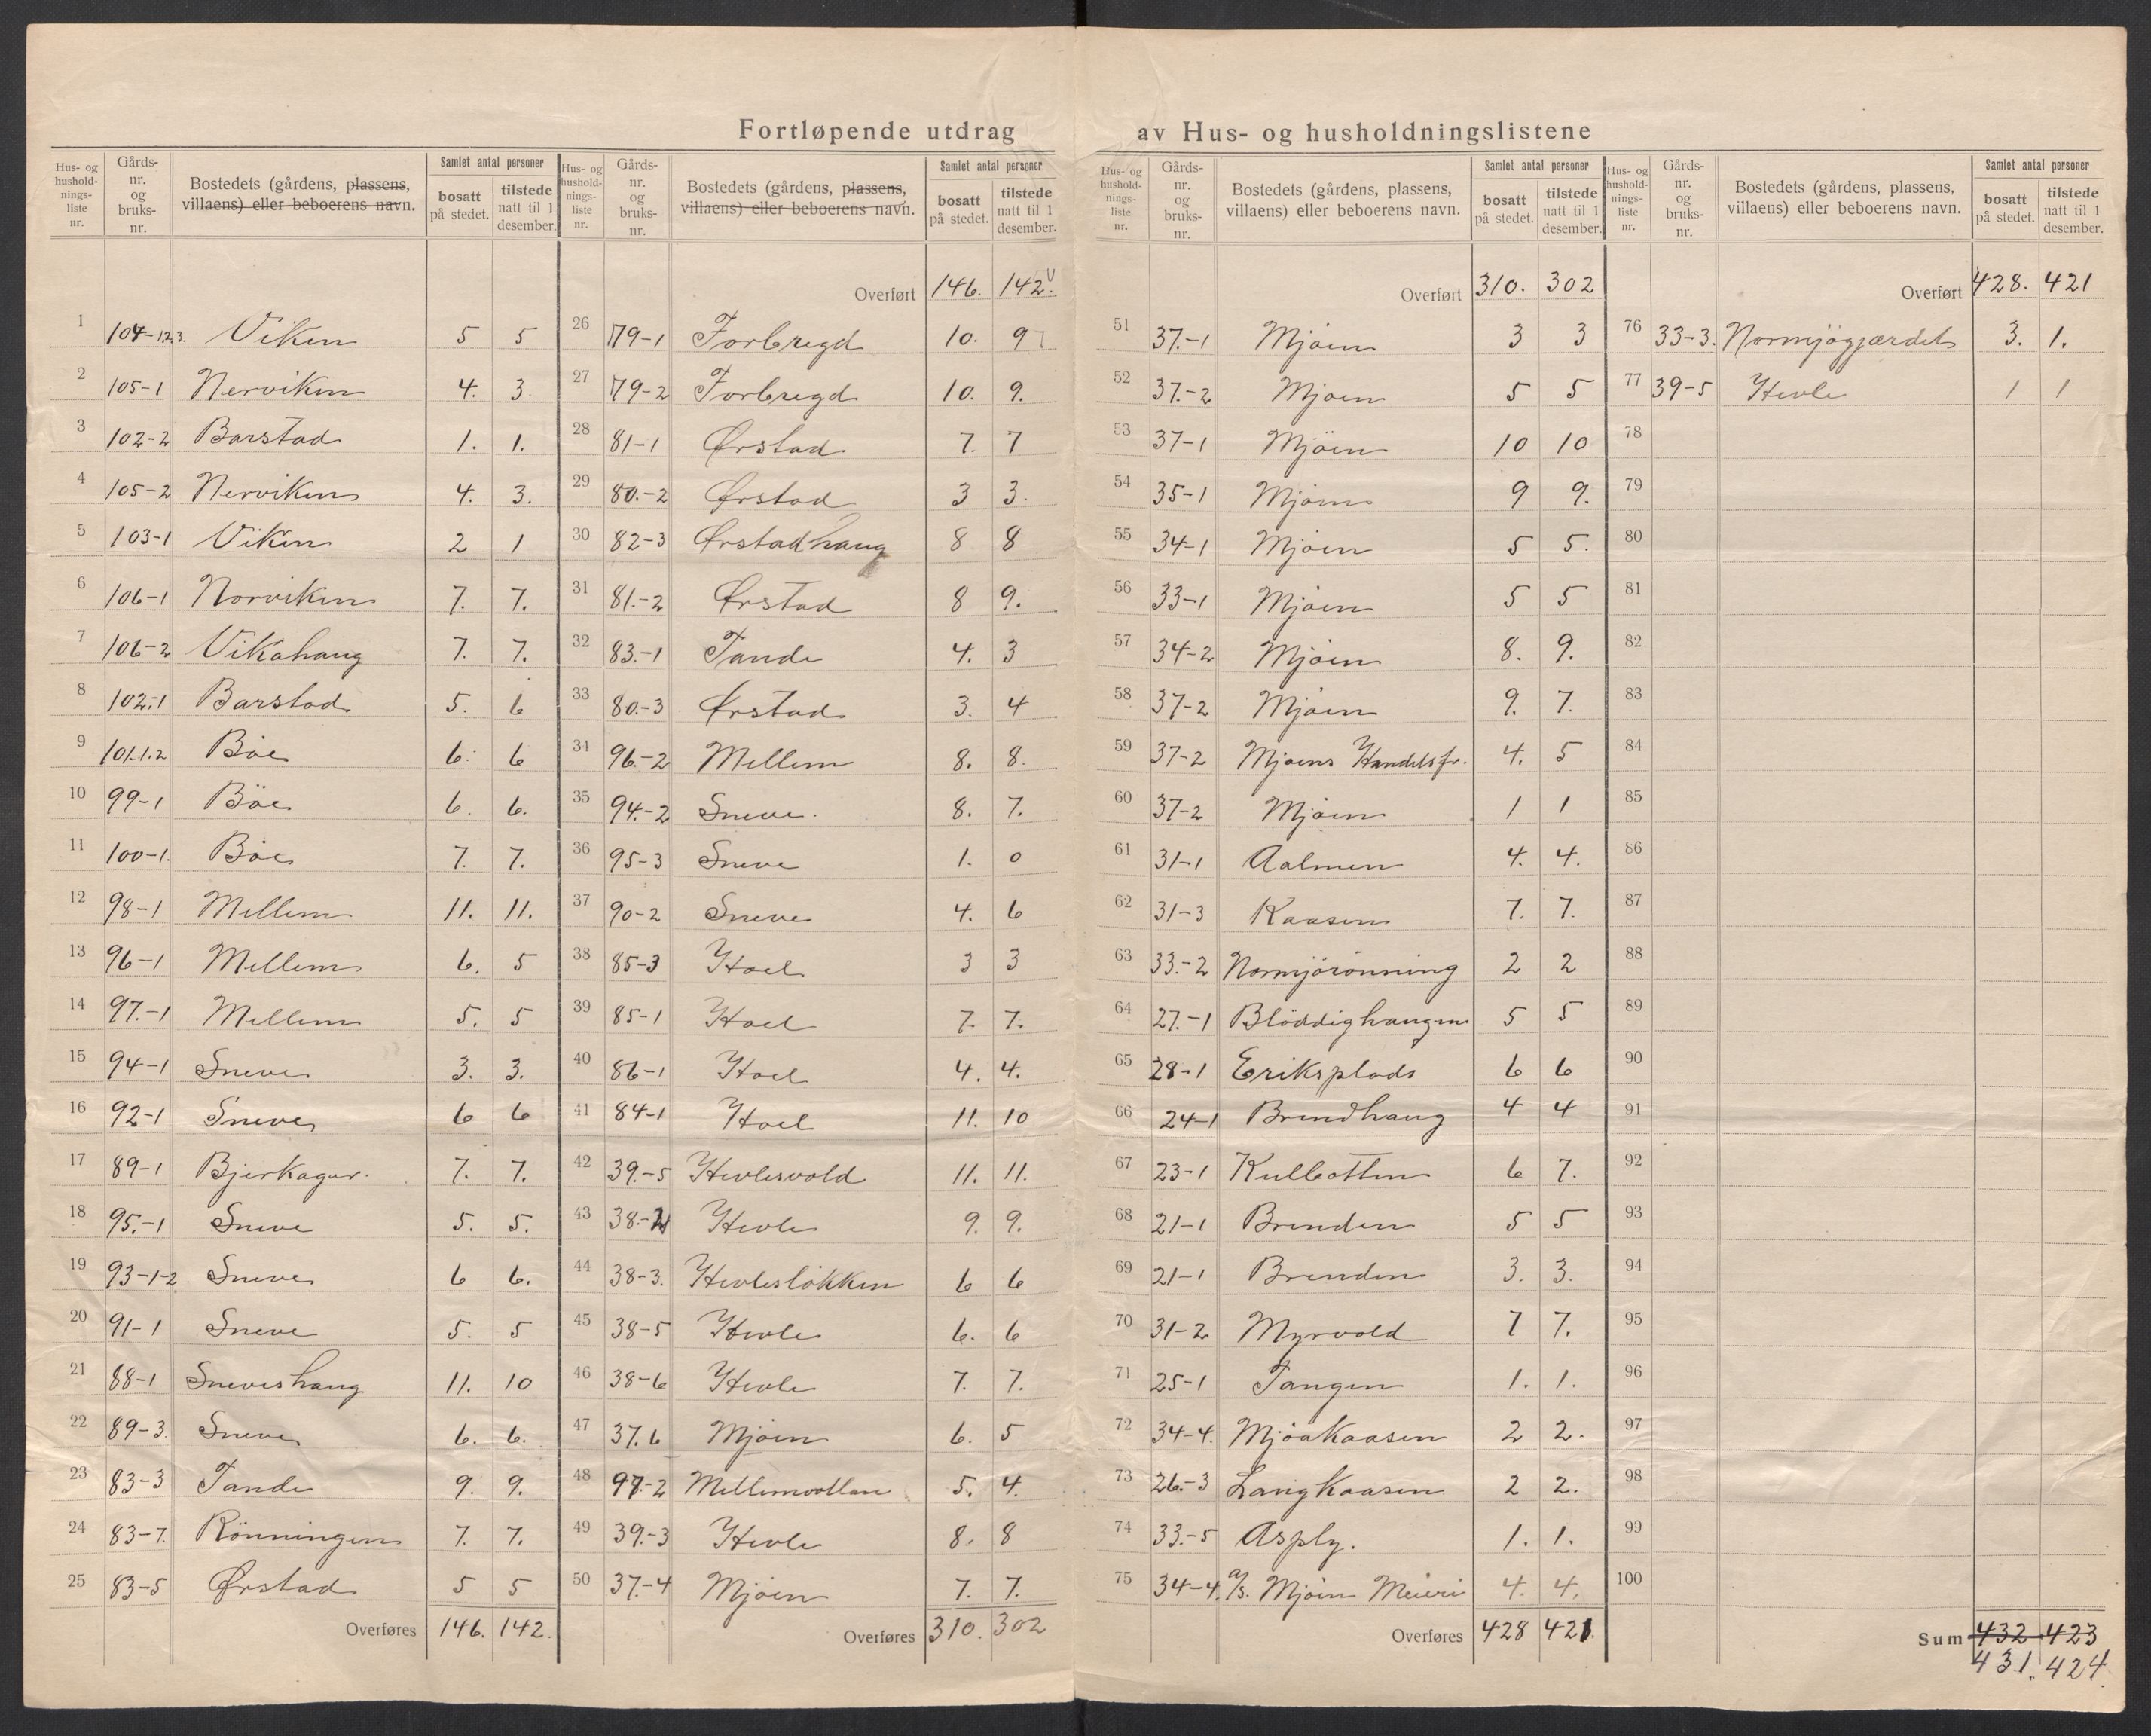 Fortløpende utdrag av Hus- og husholdningslistene
Hus- og husholdningsliste nr. Gårdsnr. og bruksnr. Bostedets (gårdens, plassens, villaens) eller beboerens navn. Samlet antal personer bosatt på stedet. tilstede natt til 1 desember.
1 104-1,2,3. Viken 5 5
2 105-1 Nerviken 4. 3
3 102-2 Barstad 1. 1.
4 105-2 Nerviken 4. 3.
5 103-1 Viken 2 1
6 106-1 Norviken 7. 7.
7 106-2 Vikahaug 7. 7.
8 102.-1 Barstad 5. 6
9 101.1.2 Böe 6. 6
10 99-1 Böe 6. 6.
11 100-1. Böe 7. 7.
12 98-1 Mellem 11. 11.
13 96-1 Mellem 6. 5
14 97.-1 Mellem 5. 5
15 94-1 Sneve 3. 3.
16 92-1 Sneve 6 6
17 89-1 Bjerkager. 7. 7.
18 95.-1 Sneve 5. 5.
19 93-1-2 Sneve 6 6.
20 91-1 Sneve 5. 5
21 88-1 Sneveshaug 11. 10
22 89-3. Sneve 6. 6.
23 83-3 Tande 9. 9.
24 83-7. Rönningen 7. 7.
25 83-5 Ørstad 5 5
Overføres 146. 142.
Hus- og husholdningsliste nr. Gårdsnr. og bruksnr. Bostedets (gårdens, plassens, villaens) eller beboerens navn. Samlet antal personer bosatt på stedet. tilstede natt til 1 desember.
Overført 146. 142.
26 79-1 Forbregd 10. 9
27 79-2 Forbregd 10. 9.
28 81-1 Ørstad 7. 7
29 80.-2 Ørstad 3 3.
30 82-3 Ørstadhaug 8 8
31 81.-2 Ørstad 8 9.
32 83.-1 Tande 4. 3
33 80.-3 Ørstad 3. 4
34 96.-2 Mellem 8. 8.
35 94.-2 Sneve. 8. 7.
36 95-3 Sneve 1. 0
37 90-2 Sneve 4. 6
38 85-3 Hoel 3 3
39 85-1 Hoel 7. 7.
40 86-1 Hoel 4. 4.
41 84-1 Hoel 11. 10
42 39.-5 Hevlesvold 11. 11.
43 38.-2 Hevle 9. 9.
44 38-3. Hevleslökken 6 6
45 38-5 Hevle 6. 6
46 38-6 Hevle 7. 7.
47 37.6 Mjöen 6. 5
48 97-2 Mellemvollan 5. 4.
49 39.-3 Hevle 8. 8
50 37.-4 Mjöen 7. 7.
Overføres 310. 302
Hus- og husholdningsliste nr. Gårdsnr. og bruksnr. Bostedets (gårdens, plassens, villaens) eller beboerens navn. Samlet antal personer bosatt på stedet. tilstede natt til 1 desember.
Overført 310. 302
51 37.-1 Mjöen 3 3
52 37.-2 Mjöen 5 5
53 37-1 Mjöen 10 10
54 35-1 Mjöen 9 9.
55 34-1 Mjöen 5 5.
56 33-1 Mjöen 5 5
57 34-2 Mjöen 8. 9.
58 37-2 Mjöen 9. 7.
59 37-2 Mjöens Handelsfr. 4. 5
60 37-2 Mjöen 1 1
61 31-1 Aalmen 4. 4.
62 31-3 Kaasen 7. 7.
63 33.-2 Normjörönning 2 2
64 27.-1 Blöddighaugen 5 5
65 28-1 Eriksplads 6 6
66 24-1 Brendhaug 4 4
67 23-1 Kulbotten 6 7.
68 21-1 Brenden 5 5
69 21-1 Brenden 3. 3.
70 31-2 Myrvold 7 7.
71 25-1 Tangen 1. 1.
72 34-4. Mjöakaasen 2 2.
73 26.-3 Langkaasen 2 2.
74 33.-5 Asply. 1. 1.
75 34-4. A/S. Mjöen Meieri 4. 4.
Overføres 428 421.
Hus- og husholdningsliste nr. Gårdsnr. og bruksnr. Bostedets (gårdens, plassens, villaens) eller beboerens navn. Samlet antal personer bosatt på stedet. tilstede natt til 1 desember.
Overført 428. 421
76 33-3. Normjögjærdet 3. 1.
77 39-5 Hevle 1 1
78
79
80
81
82
83
84
85
86
87
88
89
90
91
92
93
94
95
96
97
98
99
100
Sum 432 423
431. 424.